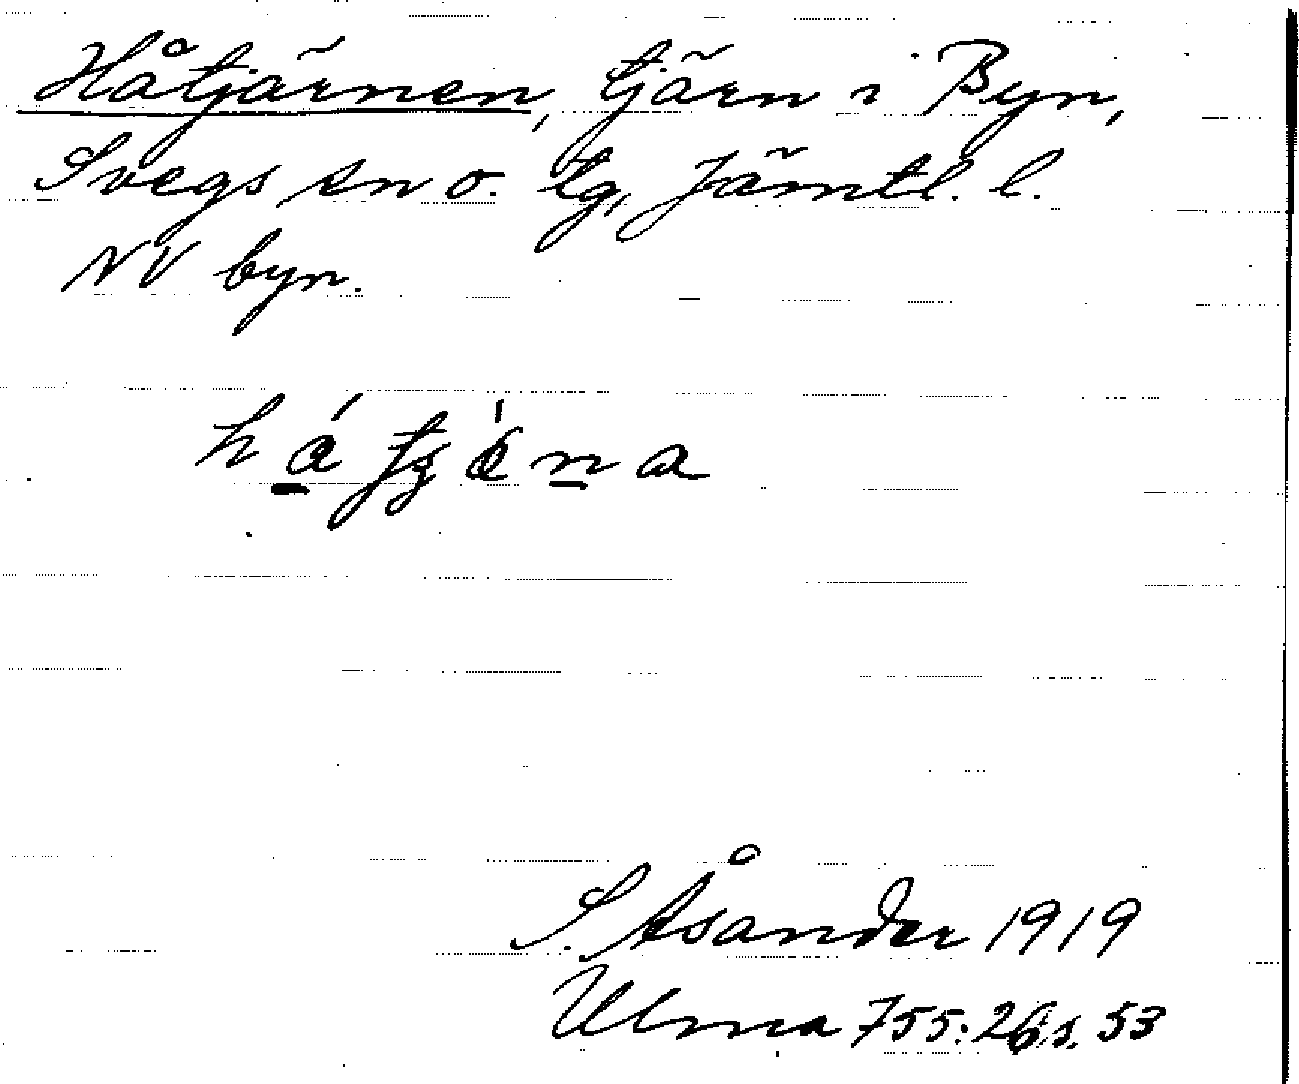 Håtjärnen, tjärn i Byn,
Svegs sn o. tg, Jämtl. l.
NV byn.
S. Åsander 1919
Ulma 755:26, s. 53